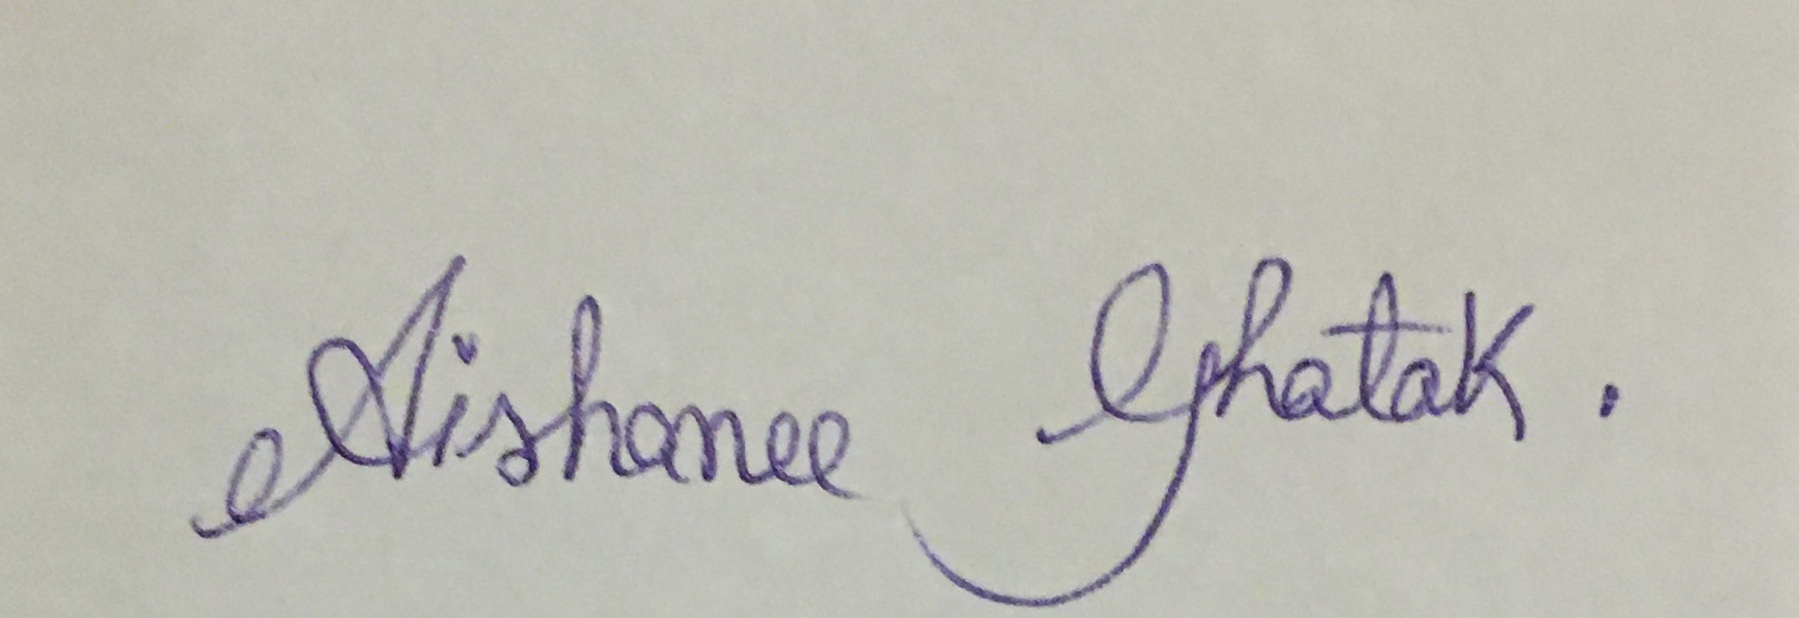 Aishanee Ghatak.